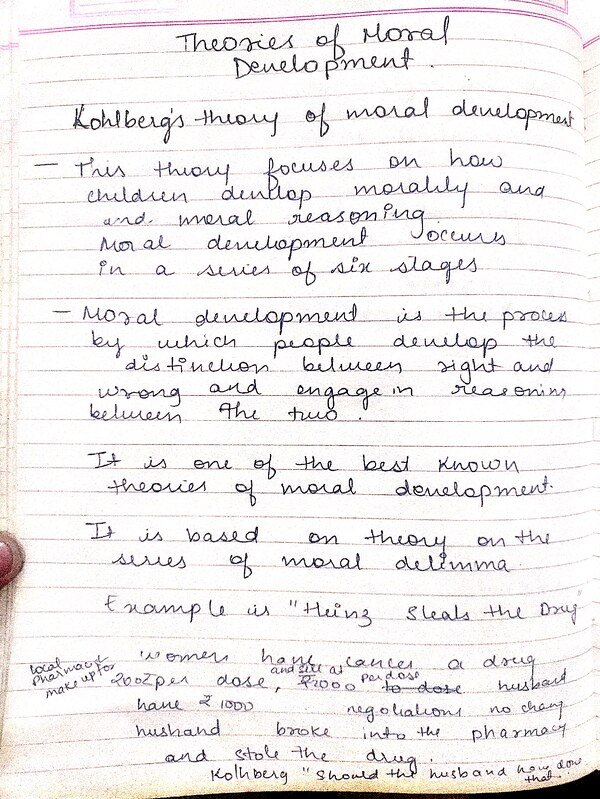 Theories of Moral
Development.
Kohlberg's theory of moral development
- This theory focuses on how
children develop morality and
and. moral reasoning.
Moral development occurs
in a series of six stages
- Moral development is the proces
by which people develop the
distinction between right and
wrong and engage in reasoning
between the two.
It is one of the best known
theories of moral development.
It is based on theory on the
series of moral delimma.
Example is "Heinz Steals the Drug
women have cancer a drug
local
pharmacy
make up for
200₹ per dose, and sell at ₹2000 per dose to dose husband
have ₹1000 negotiations no chang
husband broke into the pharmacy
and stole the drug.
Kolhberg "Should the husband have don
that.